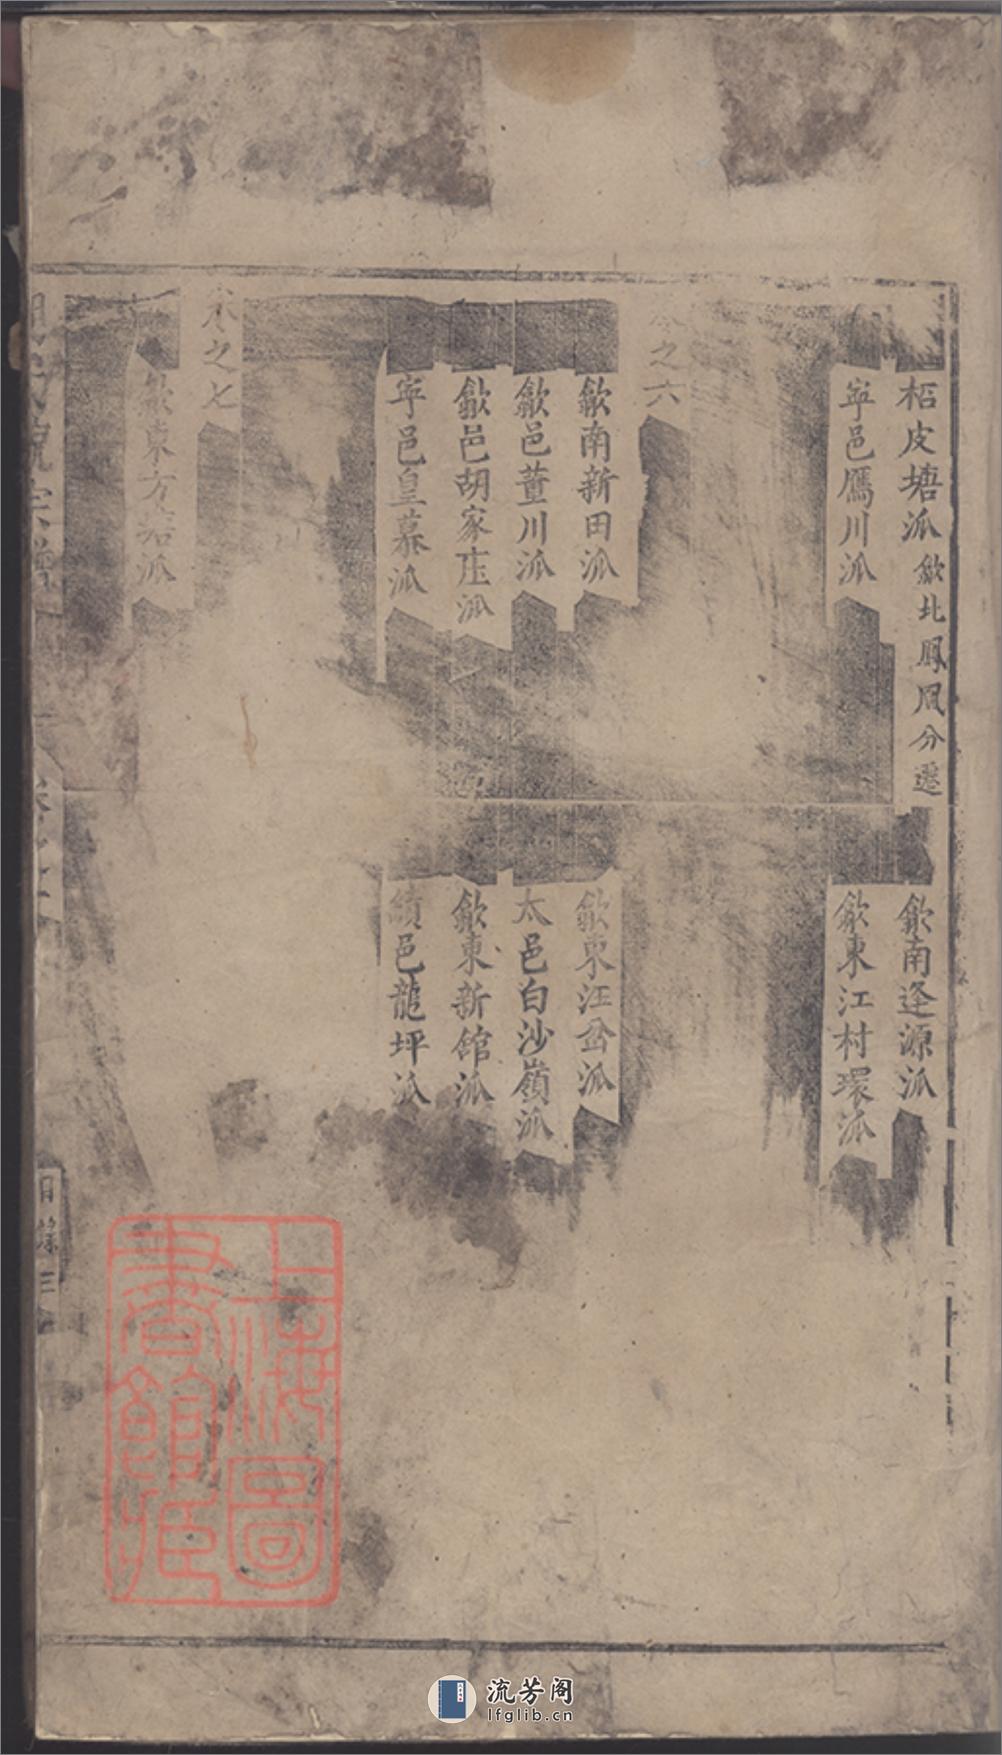 桕皮塘派歙北鳳凰分遷
歙南逢源派
寕邑鴈川派
歙東江村環派
卷之六
歙南新田派
歙東汪岔派
歙邑董川派
太邑白沙嶺派
歙邑胡家庄派
歙東新館派
寕邑皇墓派
績邑龍坪派
卷之七
歙東方塘派
宗譜
目錄
上海圖書館藏
流芳阁
lfglib.cn